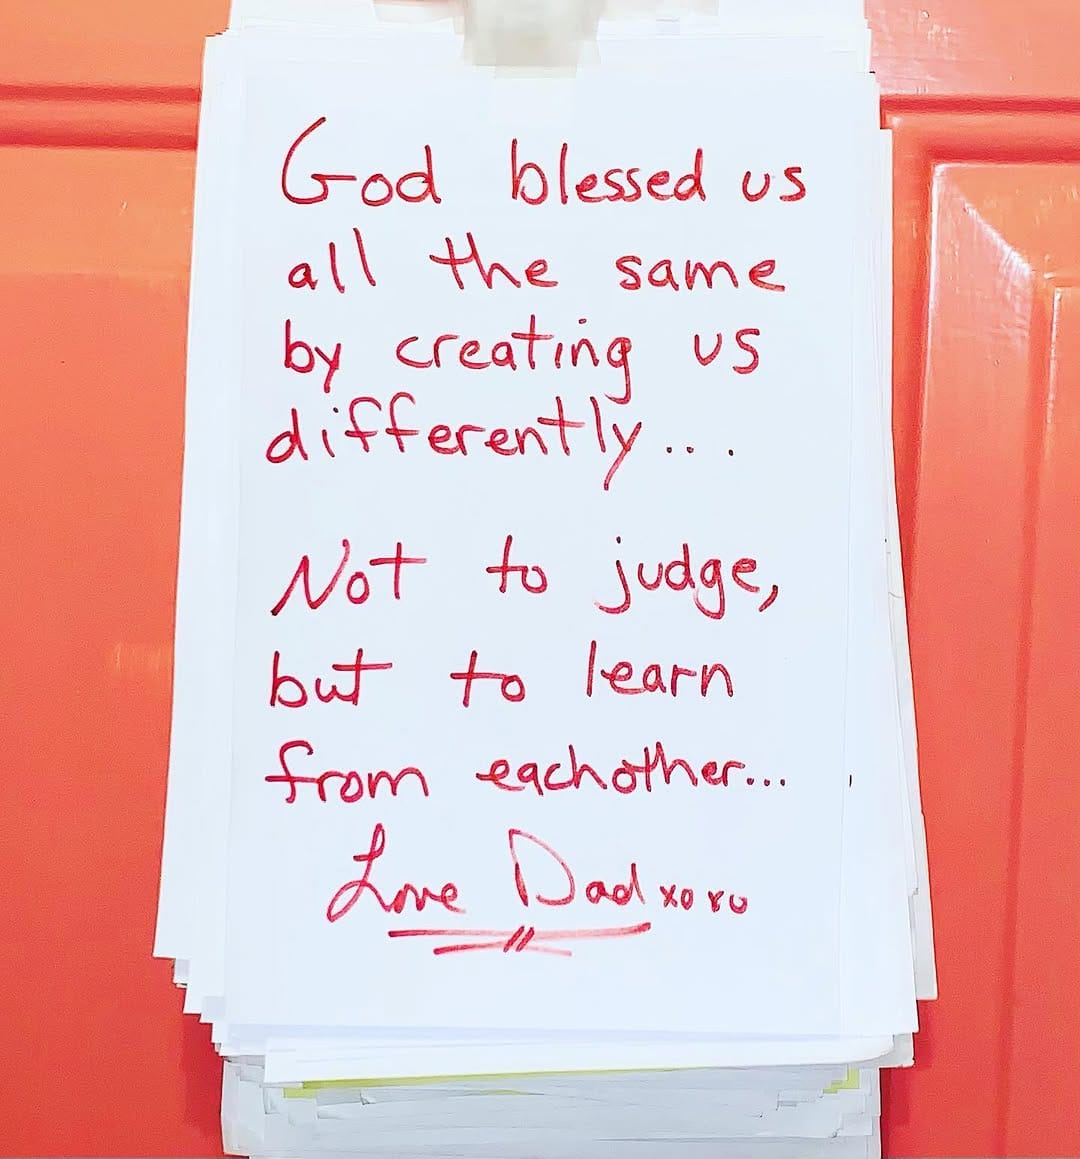 God blessed us
all the same
by creating us
differently...
Not to judge,
but to learn
from eachother...
Love Dad xoxo